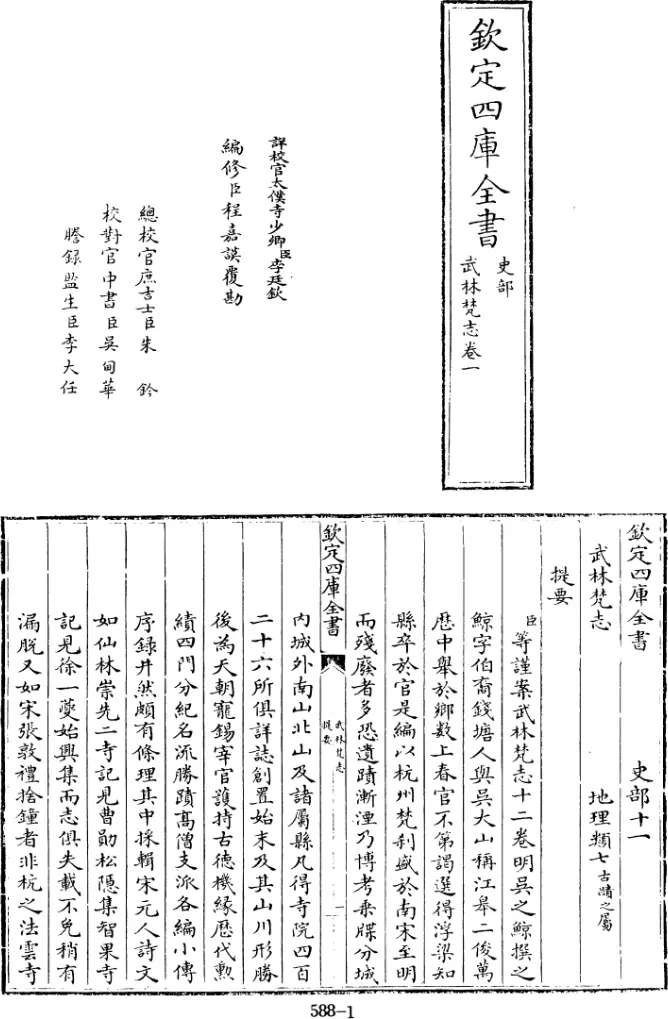 欽定四庫全書
史部
武林梵志卷一
詳校官太僕寺少卿臣李廷欽
編修臣程嘉謨覆勘
總校官庶吉士臣朱鈐
校對官中書臣吳甸華
謄錄監生臣李大任
欽定四庫全書
史部十一
武林梵志
地理類七古蹟之屬
提要
臣等謹案武林梵志十二卷明吳之鯨撰之
鯨字伯裔錢塘人與吳大山稱江皋二俊萬
歷中舉於鄉數上春官不第謁選得浮梁知
縣卒於官是編以杭州梵刹盛於南宋至明
而殘廢者多恐遺蹟漸湮乃博考乘牒分城
欽定四庫全書
武林梵志
提要
一
内城外南山北山及諸屬縣凡得寺院四百
二十六所俱詳誌創置始末及其山川形勝
後為天朝寵錫宰官護持古德機緣歷代勲
績四門分紀名流勝蹟高僧支派各編小傳
序録井然頗有條理其中採輯宋元人詩文
如仙林崇先二寺記見曹勛松隱集智果寺
記見徐一夔始興集而志俱失載不免稍有
漏脱又如宋張敦禮捨鐘者非杭之法雲寺
588-1